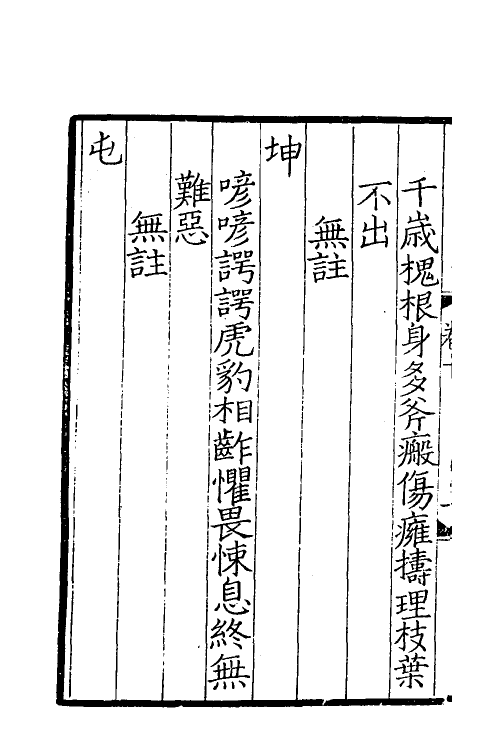 千歳槐根身多斧瘢傷癰擣理枝葉
不出
無註
坤
喭喭諤諤虎豹相齚懼畏悚息終無
難惡
無註
屯